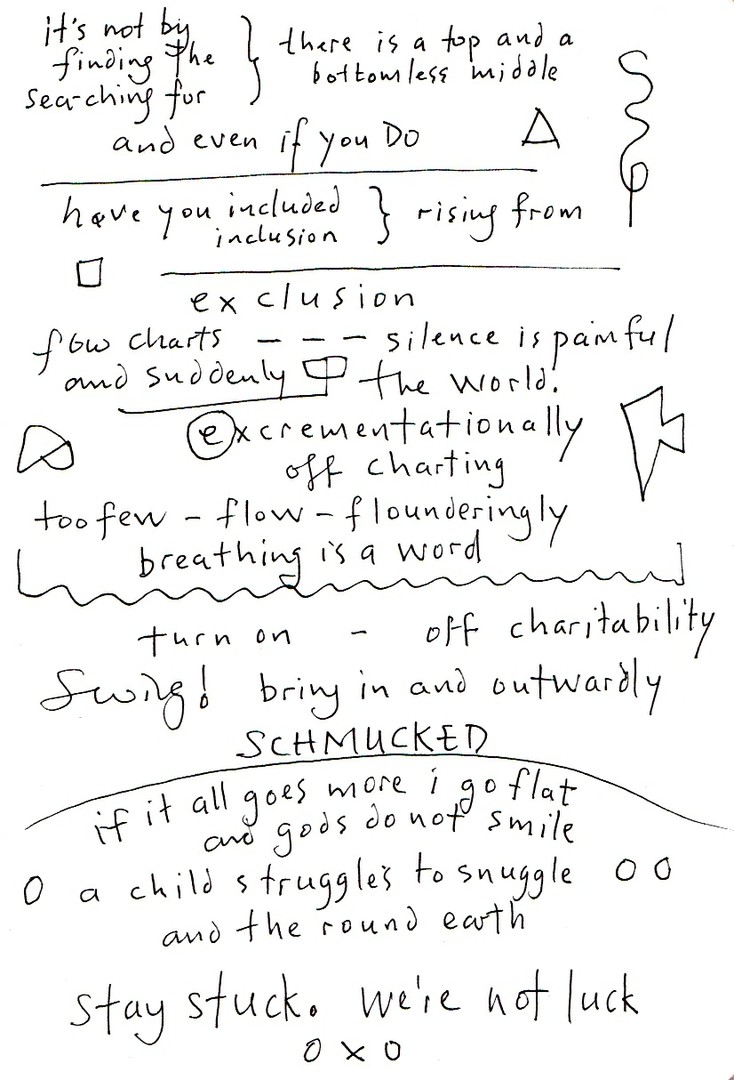 it's not by
finding the } there is a top and a
searching for bottomless middle
and even if you Do
have you included } rising from
inclusion
exclusion
flow charts - - - silence is painful
and suddenly the world!
excrementationally
off charting
too few - flow - flounderingly
breathing is a word
turn on - off charitability
Swing! bring in and outwardly
SCHMUCKED
if it all goes more i go flat
and gods do not smile
0 a child struggles to snuggle 0 0
and the round earth
stay stuck. we're not luck
0 x 0